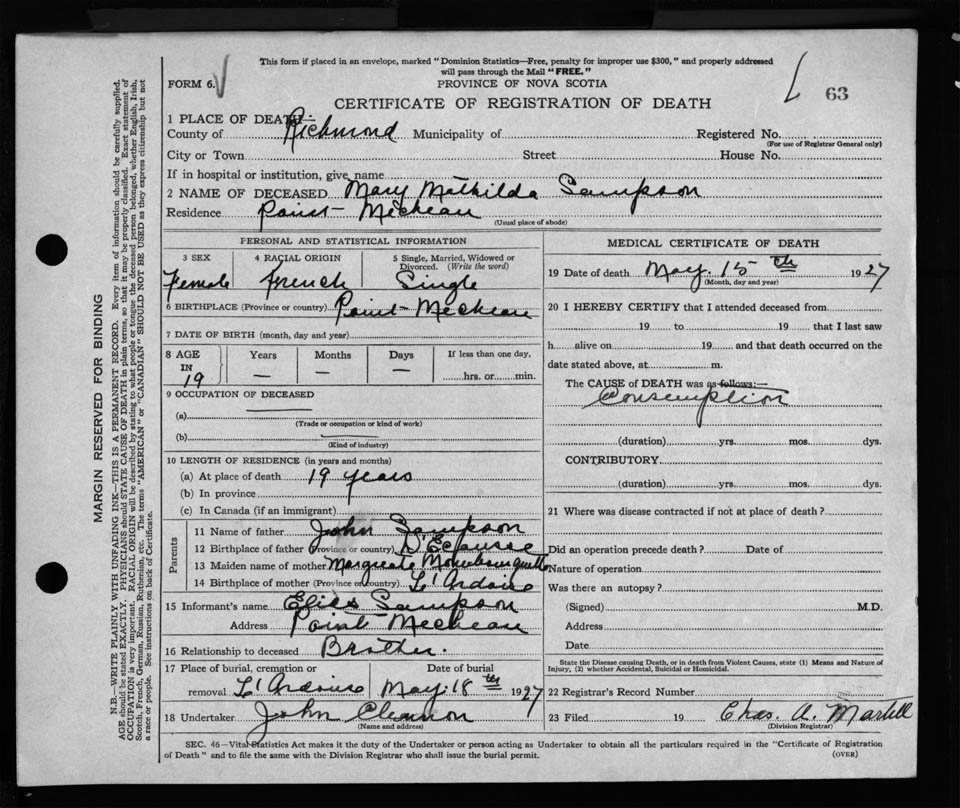 This form if placed in an envelope, marked "Dominion Statistics—Free, penalty for improper use $300," and properly addressed
will pass through the Mail "FREE."
FORM 6.
PROVINCE OF NOVA SCOTIA
63
CERTIFICATE OF REGISTRATION OF DEATH
1 PLACE OF DEATH:—
County of Richmond Municipality of Registered No.
(For use of Registrar General only)
City or Town Street House No.
If in hospital or institution, give name
2 NAME OF DECEASED Mary Mathilda Sampson
Residence Point-Micheau
(Usual place of abode)
PERSONAL AND STATISTICAL INFORMATION
3 SEX 4 RACIAL ORIGIN 5 Single, Married, Widowed or
Divorced. (Write the word)
Female French Single
6 BIRTHPLACE (Province or country) Point-Micheau
7 DATE OF BIRTH (month, day and year)
8 AGE Years Months Days If less than one day,
IN
19 — — — hrs. or min.
9 OCCUPATION OF DECEASED
(a)
(Trade or occupation or kind of work)
(b)
(Kind of industry)
10 LENGTH OF RESIDENCE (in years and months)
(a) At place of death 19 years
(b) In province
(c) In Canada (if an immigrant)
Parents
11 Name of father John Sampson
12 Birthplace of father (Province or country) D'Ecousse
13 Maiden name of mother Margreate
14 Birthplace of mother (Province or country) L'Ardoise
15 Informant's name Sampson
Address Point Micheau
16 Relationship to deceased Brother.
17 Place of burial, cremation or Date of burial
removal L'Ardoise May 18th 1927
18 Undertaker John
(Name and address)
MEDICAL CERTIFICATE OF DEATH
19 Date of death May. 15th 1927
(Month, day and year)
20 I HEREBY CERTIFY that I attended deceased from
19 to 19 that I last saw
h alive on 19 and that death occurred on the
date stated above, at m.
The CAUSE of DEATH was as follows:—
Consemption
(duration) yrs. mos. dys.
CONTRIBUTORY
(duration) yrs. mos. dys.
21 Where was disease contracted if not at place of death?
Did an operation precede death? Date of
Nature of operation
Was there an autopsy?
(Signed) M.D.
Address
Date
State the Disease causing Death, or in death from Violent Causes, state (1) Means and Nature of
Injury, (2) whether Accidental, Suicidal or Homicidal.
22 Registrar's Record Number
23 Filed 19 Chas. A. Martell
(Division Registrar)
SEC. 46—Vital Statistics Act makes it the duty of the Undertaker or person acting as Undertaker to obtain all the particulars required in the "Certificate of Registration
of Death" and to file the same with the Division Registrar who shall issue the burial permit.
(OVER)
MARGIN RESERVED FOR BINDING
N.B.—WRITE PLAINLY WITH UNFADING INK—THIS IS A PERMANENT RECORD. Every item of information should be carefully supplied.
AGE should be stated EXACTLY. PHYSICIANS should STATE CAUSE OF DEATH in plain terms, so that it may be properly classified. Exact statement of
OCCUPATION is very important. RACIAL ORIGIN will be described by stating to what people or tongue the deceased person belonged, whether English, Irish,
Scotch, French, German, Russian, Ruthenian, etc. The terms "AMERICAN" or "CANADIAN" SHOULD NOT BE USED as they express citizenship but not
a race or people. See instructions on back of Certificate.